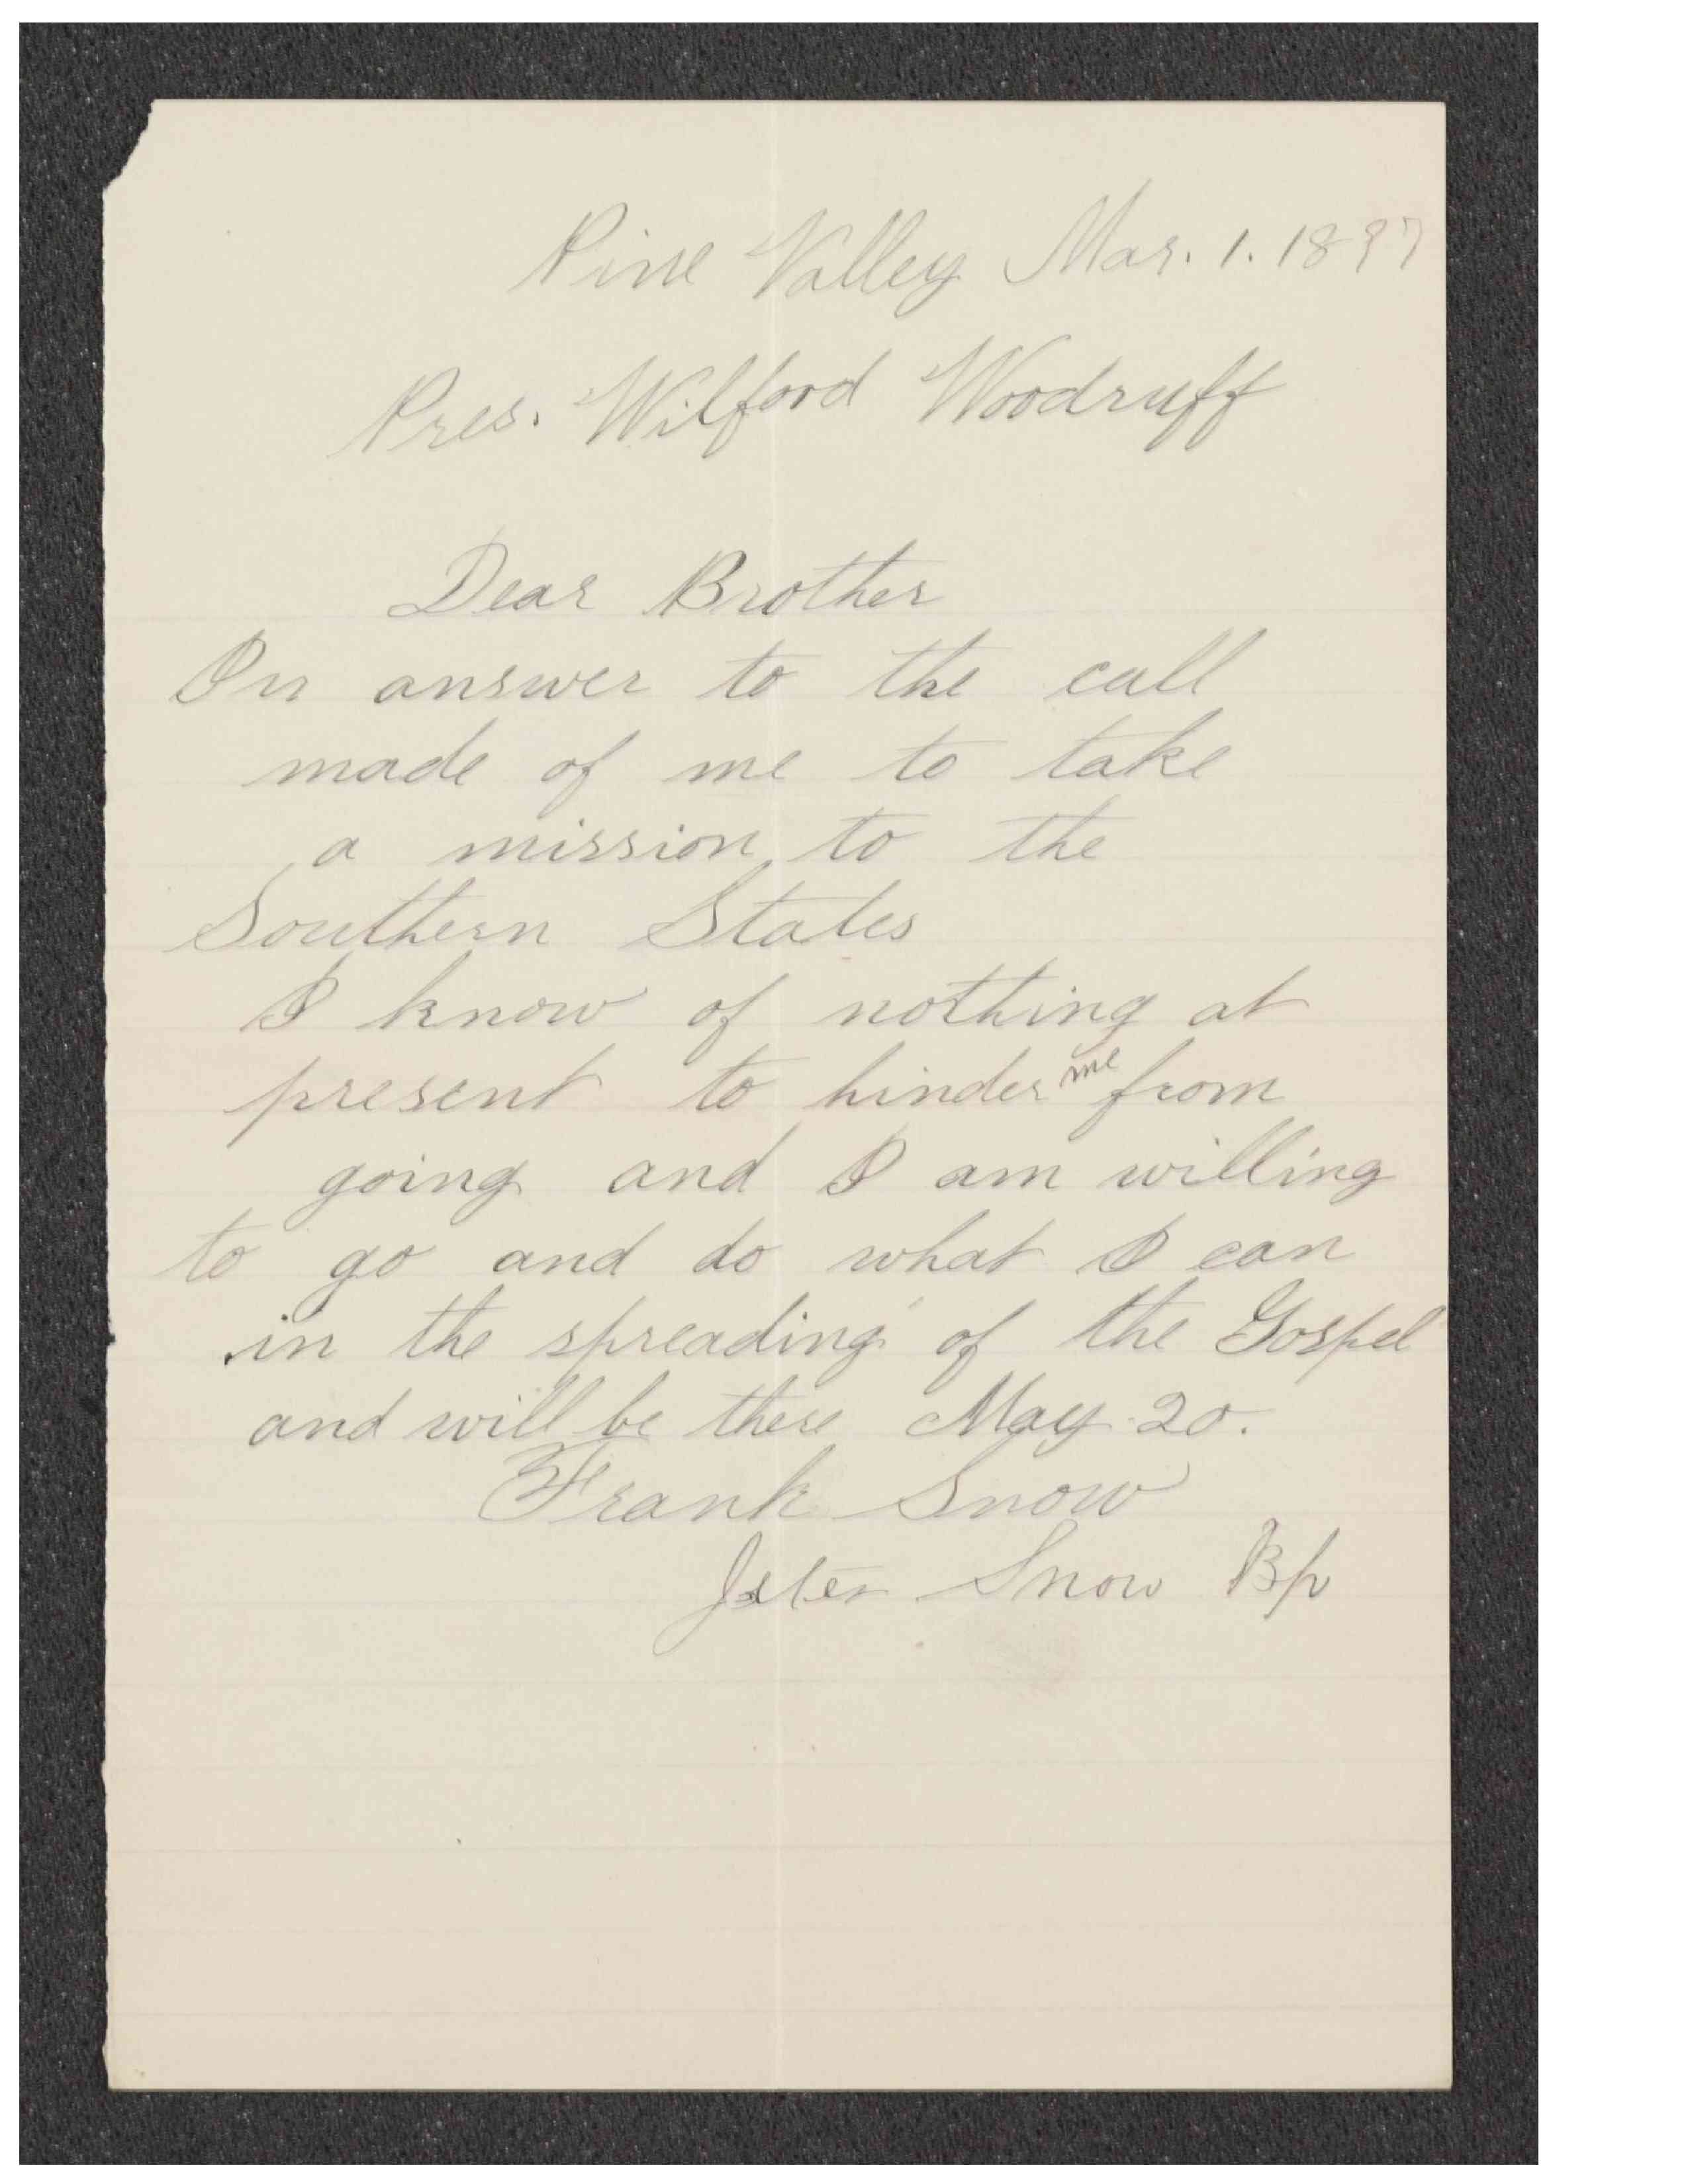 Pine Valley Mar. 1. 1897
Pres. Wilford Woodruff
Dear Brother
In answer to the call
made of me to take
a mission to the
Southern States
I know of nothing at
present to hinder me from
going and I am willing
to go and do what I can
in the spreading of the Gospel
and will be there May 20.
Frank Snow
Snow Bp